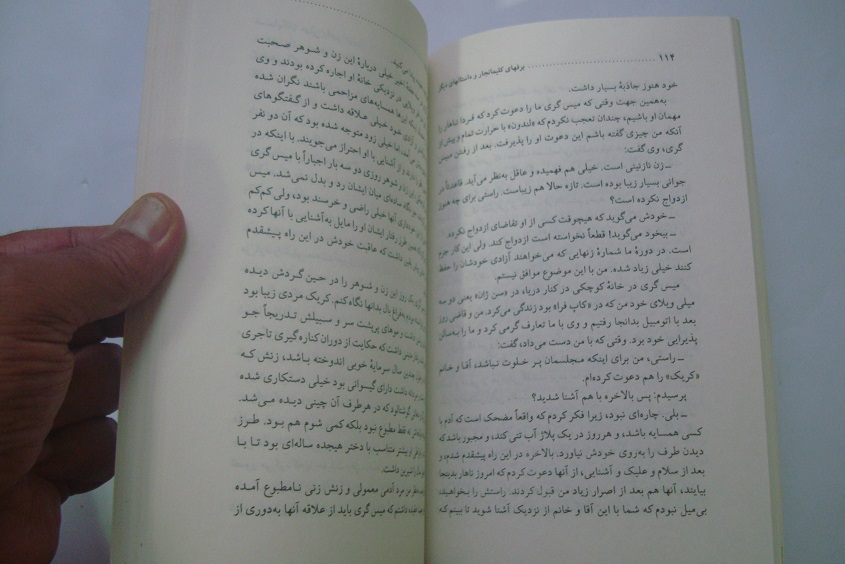 ۱۱۴ برفهای کلیمانجارو و داستانهای دیگر
خود هنوز جاذبهٔ بسیار داشت.
به‌همین جهت وقتی که میس گری ما را دعوت کرد که فردا ناهار را
مهمان او باشیم، چندان تعجب نکردم که «لندون» با حرارت تمام و پیش از
آنکه من چیزی گفته باشم این دعوت او را پذیرفت. بعد از رفتن میس
گری، وی گفت:
ــ زن نازنینی است. خیلی هم فهمیده و عاقل به‌نظر می‌آید. قاعدتاً در
جوانی بسیار زیبا بوده است. تازه حالا هم زیباست. راستی برای چه هنوز
ازدواج نکرده است؟
ــ خودش می‌گوید که هیچوقت کسی از او تقاضای ازدواج نکرد.
ــ بیخود می‌گوید! قطعاً نخواسته است ازدواج کند. ولی این کار جرم
است. در دورهٔ ما شمارهٔ زنهایی که می‌خواهند آزادی خودشان را حفظ
کنند خیلی زیاد شده. من با این موضوع موافق نیستم.
میس گری در خانهٔ کوچکی در کنار دریا، در «سن ژان» یعنی دو سه
میلی ویلای خود من که در «کاپ فرا» بود زندگی می‌کرد. من و قاضی
بعد با اتومبیل بدانجا رفتیم و وی با ما تعارف گرمی کرد و ما را به‌سالن
پذیرایی خود برد. وقتی که با من دست می‌داد، گفت:
ــ راستی، من برای اینکه مجلسمان پر خلوت نباشد، آقا و خانم
«کریک» را هم دعوت کرده‌ام.
پرسیدم: پس بالاخره با هم آشنا شدید؟
ــ بلی. چاره‌ای نبود، زیرا فکر کردم که واقعاً مضحک است که آدم با
کسی همسایه باشد، و هرروز در یک پلاژ آب تنی کند، و مجبور باشد که
دیدن طرف را به‌روی خودش نیاورد. بالاخره در این راه پیشقدم شدم، و
بعد از سلام و علیک و آشنایی، از آنها دعوت کردم که امروز ناهار بدینجا
بیایند، آنها هم بعد از اصرار زیاد من قبول کردند. راستش را بخواهید،
بی‌میل نبودم که شما با این آقا و خانم از نزدیک آشنا شوید تا ببینم که
می‌کنید.
خیلی دربارهٔ این زن و شوهر صحبت
در نزدیکی خانهٔ او اجاره کرده بودند و وی
همسایه‌های مزاحمی باشند نگران شده
خود خیلی علاقه داشت و از گفتگوهای
اما خیلی زود متوجه شده بود که آن دو نفر
از آشنایی با او احتراز می‌جویند. با اینکه در
زن و شوهر روزی دو سه بار اجباراً با میس گری
ساده‌ای میان ایشان رد و بدل نمی‌شد. میس
آنها خیلی راضی و خرسند بود، ولی کم‌کم
طرز رفتار ایشان او را مایل به‌آشنایی با آنها کرده
داشت که عاقبت خودش در این راه پیشقدم
روز این زن و شوهر را در حین گردش دیده
به‌فراغ بال بدانها نگاه کنم. کریک مردی زیبا بود
و موهای پرپشت سر و سبیلش تدریجاً جو
داشت که حکایت از دوران کناره گیری تاجری
سال سرمایهٔ خوبی اندوخته باشد، زنش که
داشت دارای گیسوانی بود خیلی دستکاری شده
که در هرطرف آن چینی دیده می‌شد.
نه فقط مطبوع نبود بلکه کمی شوم هم بود. طرز
بیشتر متناسب با دختر هیجده ساله‌ای بود تا با
داشت.
مرد آدمی معمولی و زنش زنی نامطبوع آمده
داشتم که میس گری باید از علاقه آنها به‌دوری از